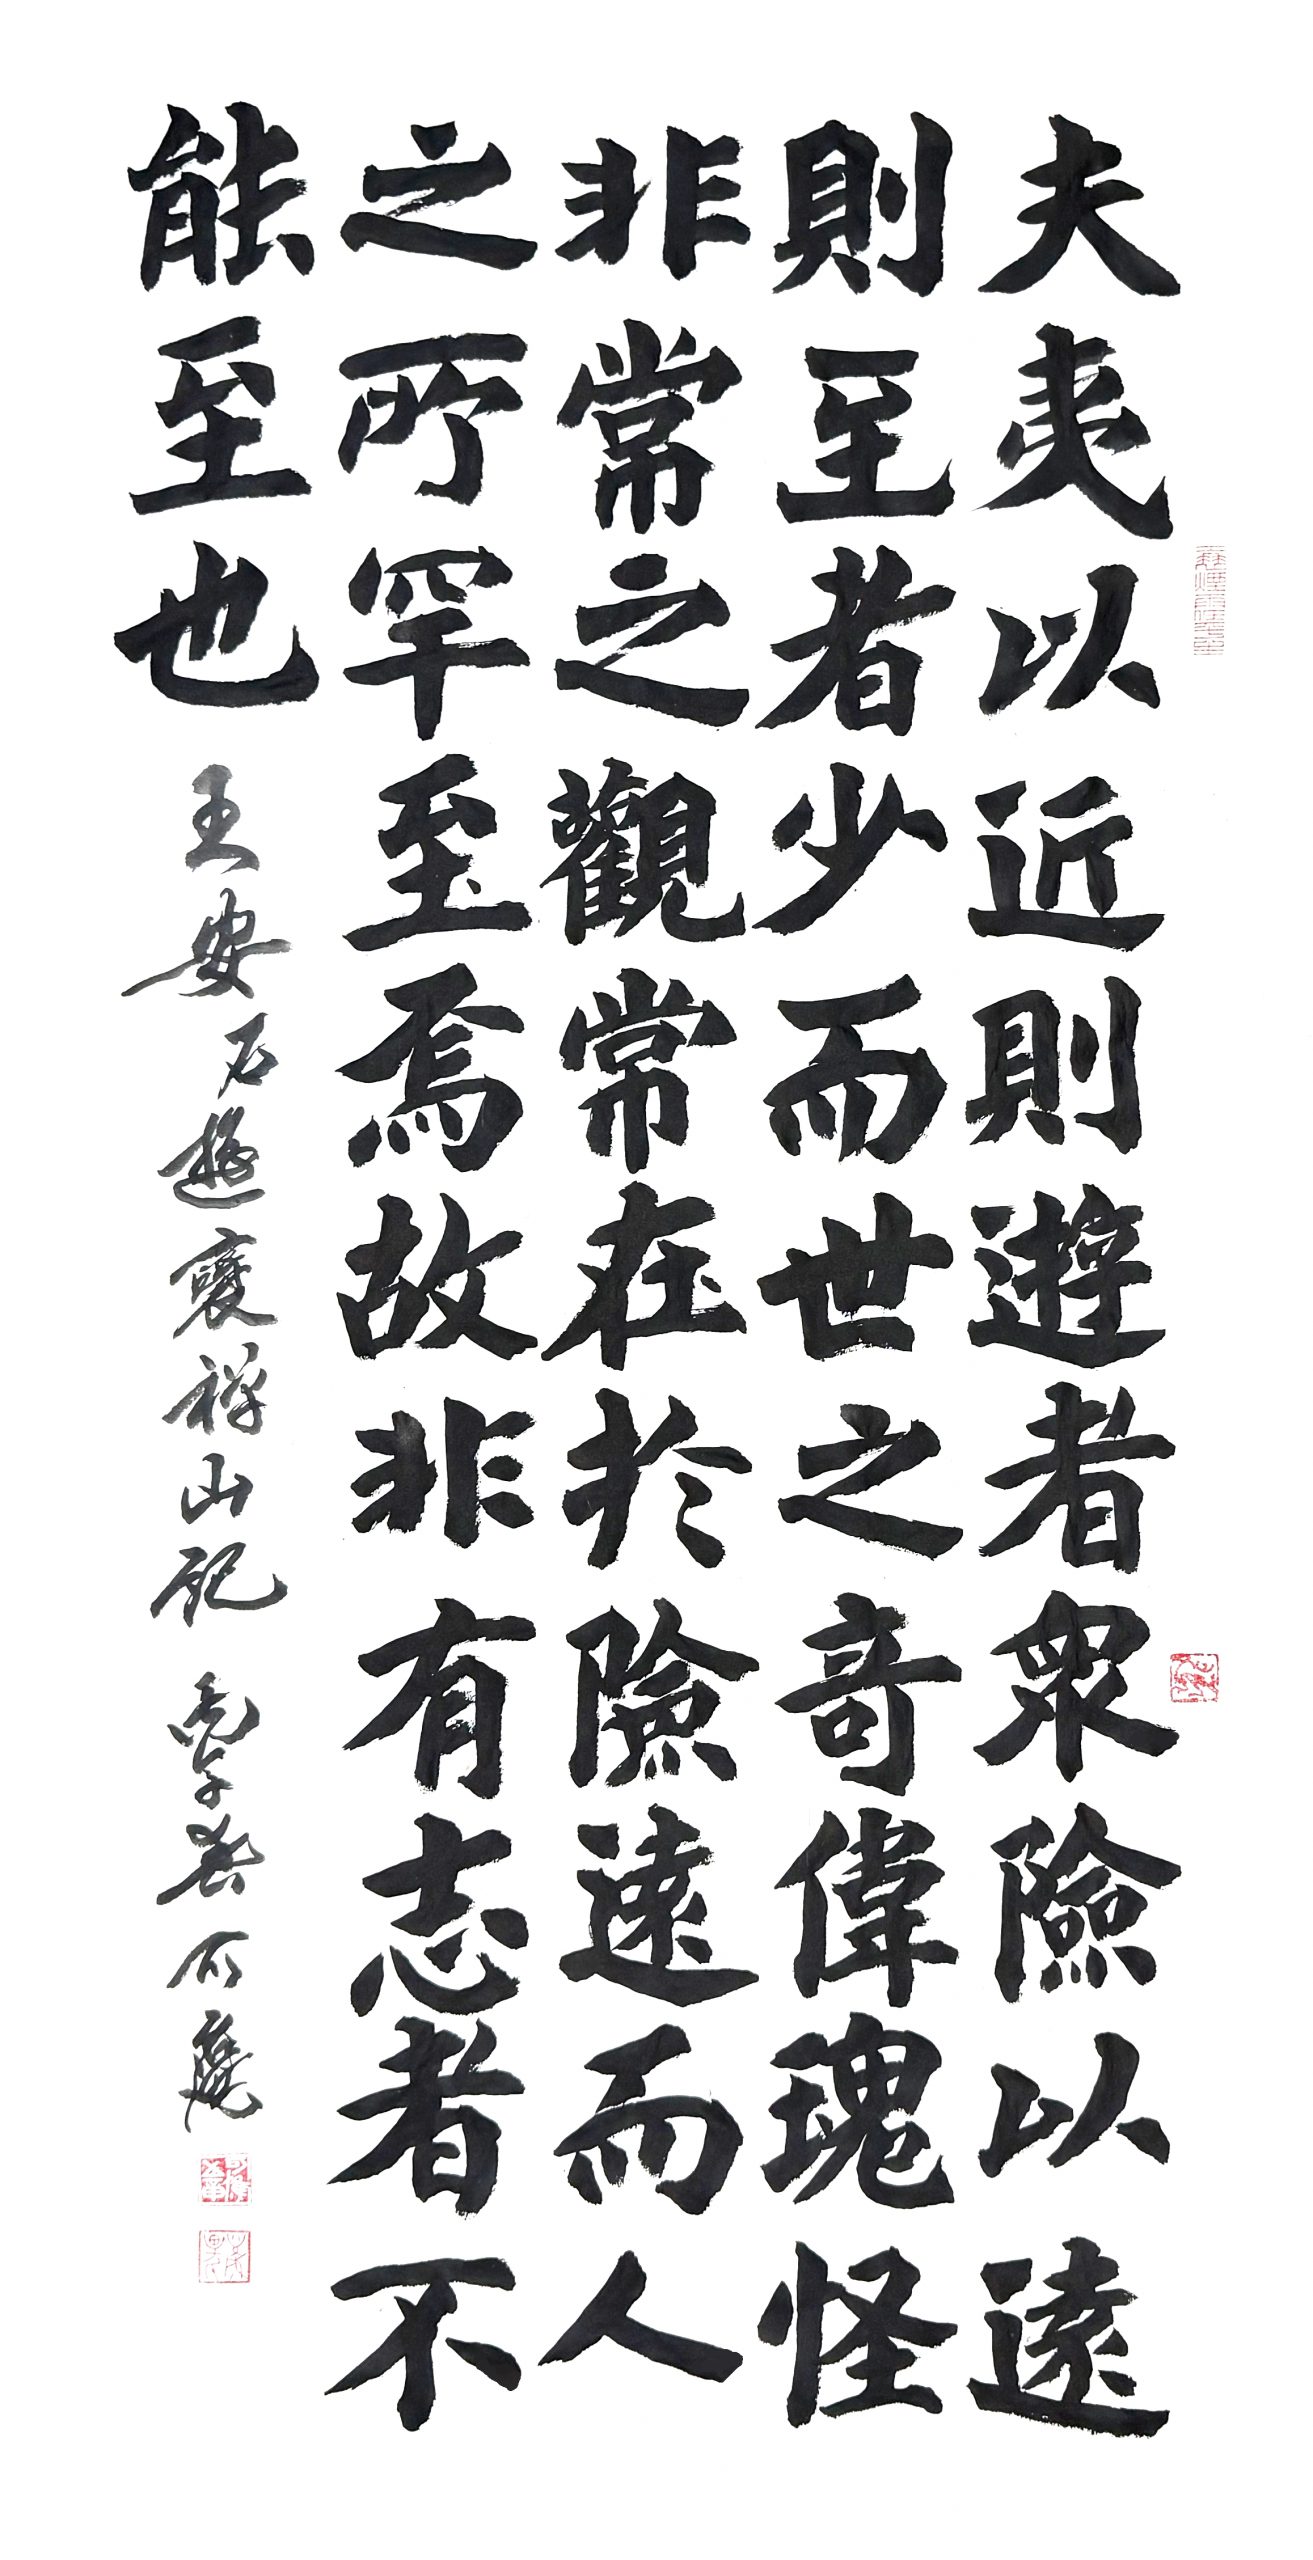 夫夷以近則遊者眾險以遠
則至者少而世之奇偉瑰怪
非常之觀常在於險遠而人
之所罕至焉故非有志者不
能至也 王安石遊褒禪山記